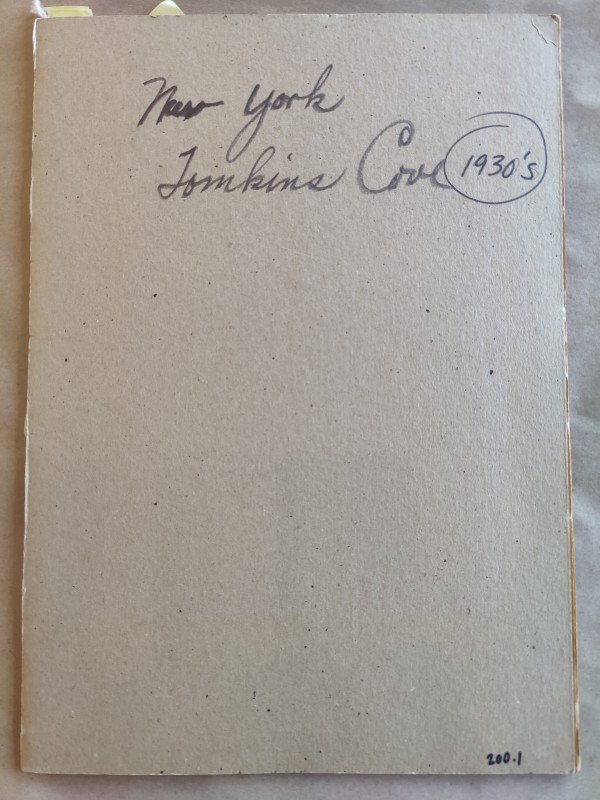 New York
Tomkins Cove 1930's
200.1